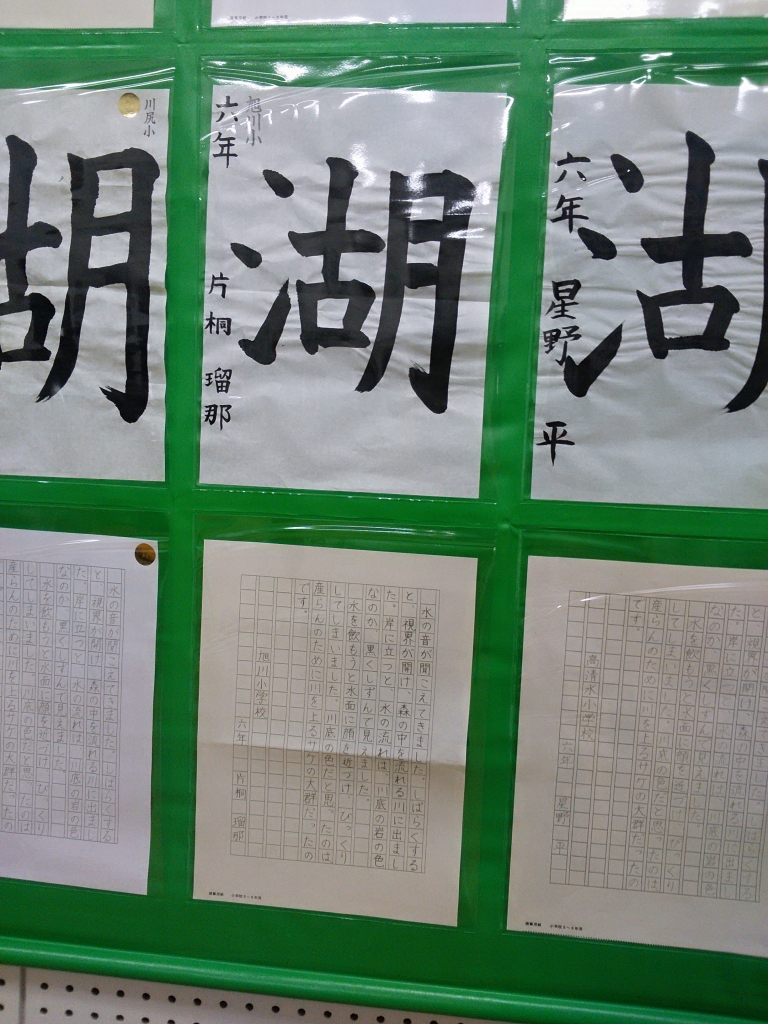 川尻小
湖
旭川小
六年
片桐 瑠那
湖
六年 星野 平
湖
水の音が聞こえてきました。しばらくする
と、視界が開け、森の中を流れる川に出まし
た。岸に立つと、水の流れは、川底の岩の色
なのか、黒くしずんで見えました。
水を飲もうと水面に顔を近づけ、びっくり
してしまいました。川底の色だと思ったのは
産らんのために川を上るサケの大群だったの
です。
旭川小学校
六年 片桐 瑠那
水の音が聞こえてきました。しばらくする
と、視界が開け、森の中を流れる川に出まし
た。岸に立つと、水の流れは、川底の岩の色
なのか、黒くしずんで見えました。
水を飲もうと水面に顔を近づけ、びっくり
してしまいました。川底の色だと思ったのは
産らんのために川を上るサケの大群だったの
た。岸に立つと、水の流れは、川底の岩の色
なのか、黒くしずんで見えました。
水を飲もうと水面に顔を近づけ、びっくり
してしまいました。川底の色だと思ったのは
産らんのために川を上るサケの大群だったの
です。
高清水小学校
六年 星野 平